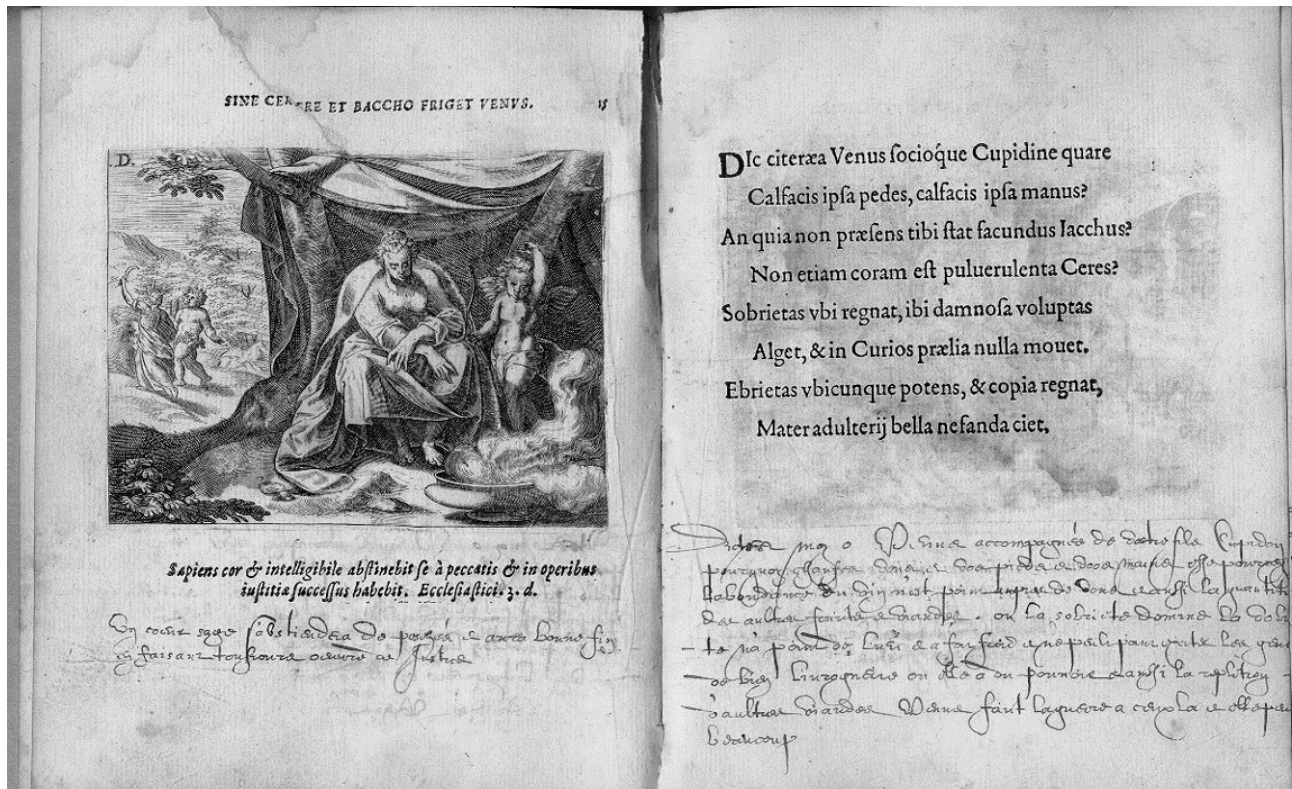 SINE CERERE ET BACCHO FRIGET VENVS. 15
.D.
Sapiens cor & intelligibile abstinebit se à peccatis & in operibus
iustitiæ successus habebit. Ecclesiastici. 3. d.
Un coeur sage s'abstiendra de peches et aura bonne fin
en faisant tousjours oeuvre de Justice
DIc citeræa Venus socioq́ue Cupidine quare
Calfacis ipsa pedes, calfacis ipsa manus?
An quia non præsens tibi stat facundus Iacchus?
Non etiam coram est puluerulenta Ceres?
Sobrietas vbi regnat, ibi damnosa voluptas
Alget, & in Curios prælia nulla mouet.
Ebrietas vbicunque potens, & copia regnat,
Mater adulterij bella nefanda ciet.
Dictes moy o Venus accompagnée de vostre filz Cupidon
pourquoy chauffes vous vos pieds et vos mains est ce pource que
labondance du vin n'est point aupres de vous et aussi la quantité
des aultres viandes. ou la sobrieté domine la volup
té n'a point de lieu et a froid et ne peult point les gens
de bien livrognerie ou elle a du pouvoir et aussi la repletion
d'aultres viandes Venus faict la guerre a ceux la
beaucoup